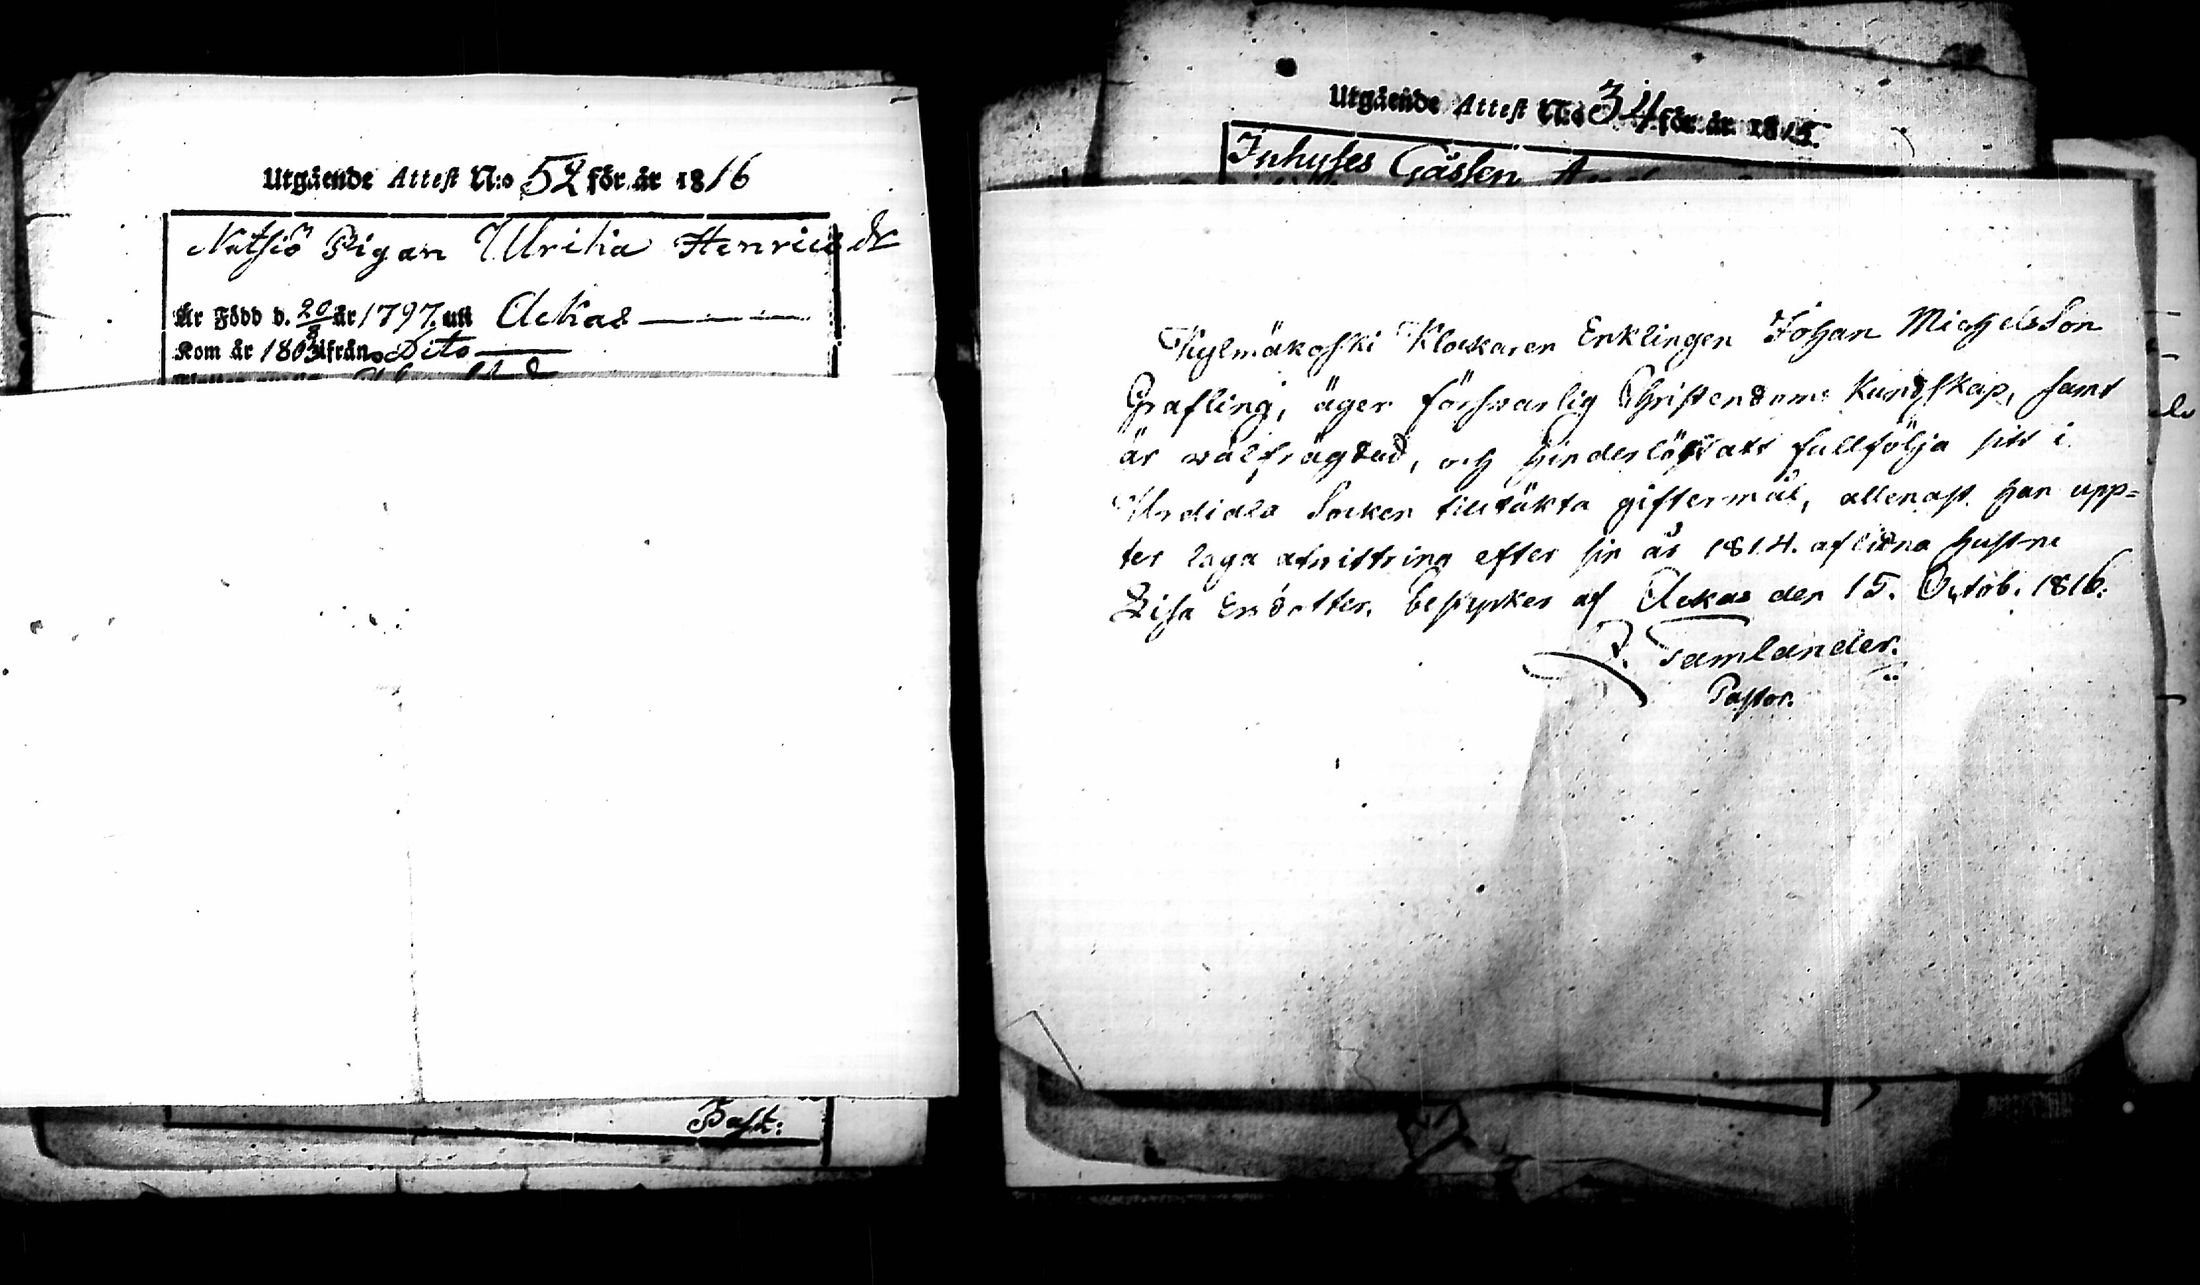 Utgående Attest N:o 52 för år 1816
Pigan Ulrika Henricsdr
Är Född d. 20/8 år 1797. uti Ackas
Kom år 1803 ifrån Dito
Past:
Utgående Attest N:o 34 för år 1815.
Inhyses Gåssen
Kylmäkoski Klockaren Enklingen Johan Michelsson
Grafling, äger försvarlig Christendoms Kundskap, samt
är wälfrägdad, och hinderlös att fullfölja sitt i
Urdiala Socken tilltäkta giftermål, allenast han upp=
ter laga afwittring efter sin år 1814. aflidna hustru
Lisa Ersdotter. Bestyrker af Ackas den 15. Octob. 1816.
Tamlander.
Pastor.